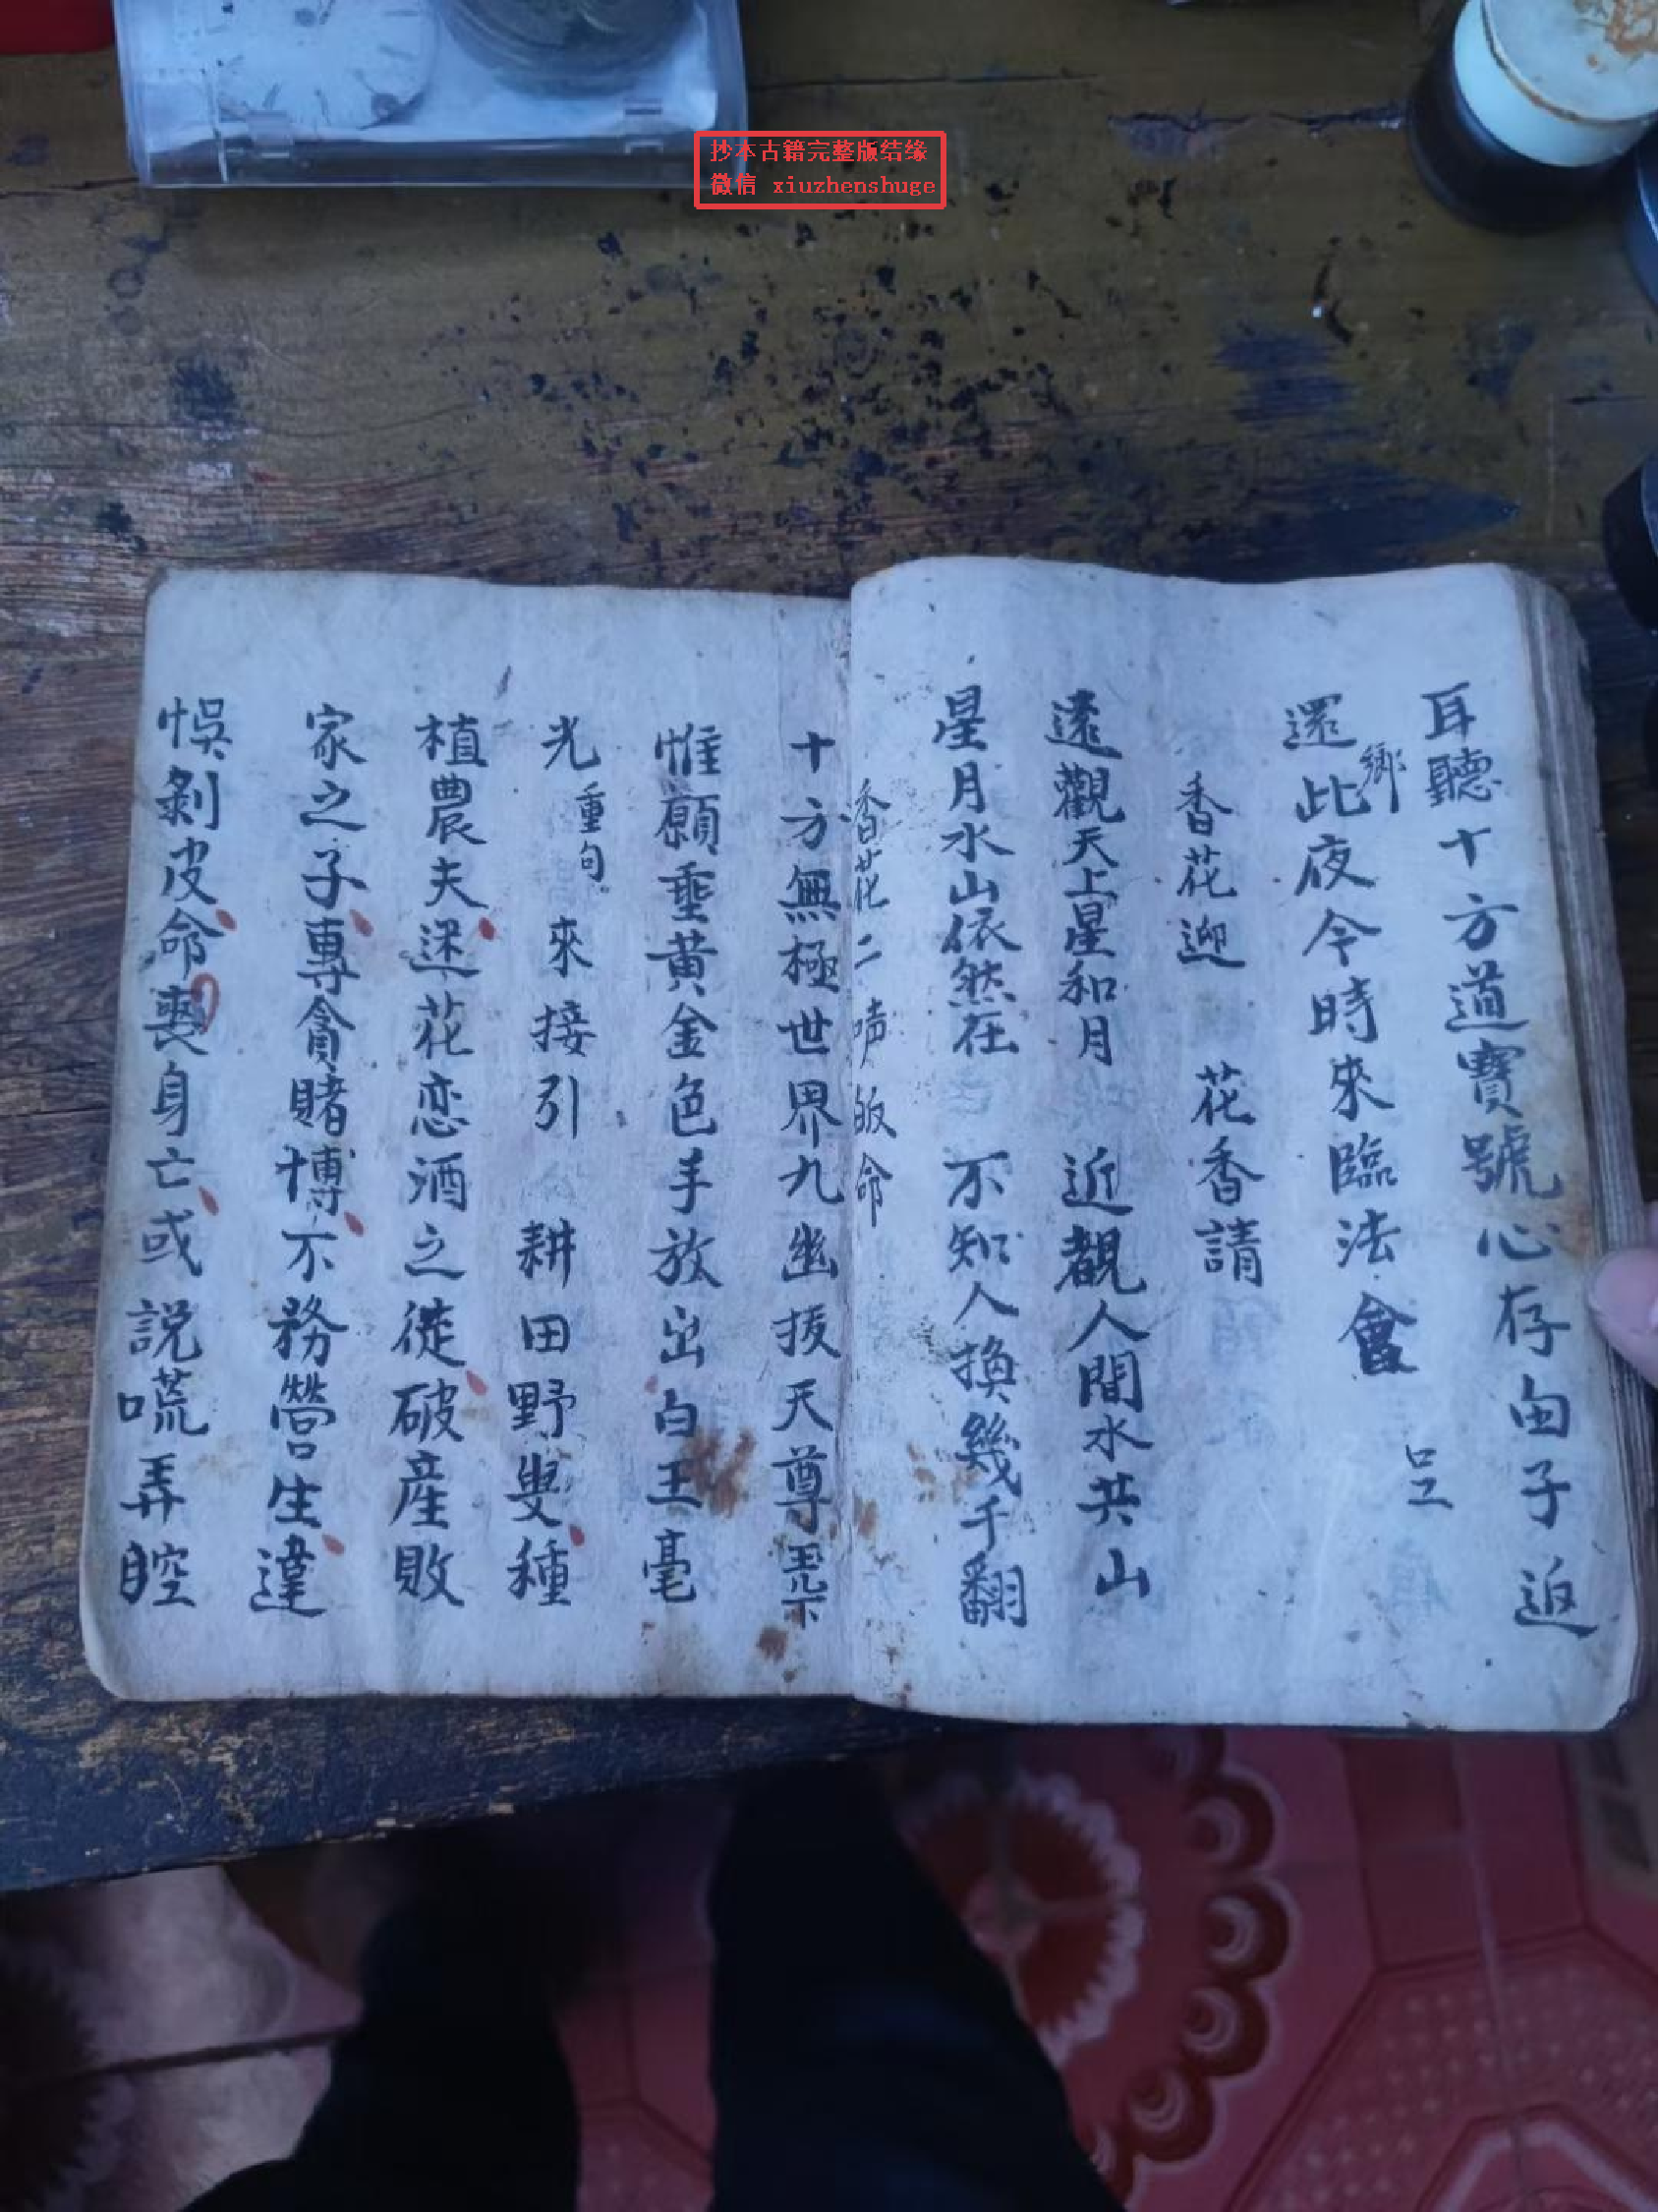 抄本古籍完整版结缘
微信 xiuzhenshuge
耳聽十方道寶號心存由子返
還鄉此夜今時來臨法會
香花迎 花香請
遠觀天上星和月 近觀人間水共山
星月水山依然在 不知人換幾千翻
香花二声皈命
十方無極世界九幽拔天尊
惟願垂黄金色手放出白玉毫
光重句 來接引 耕田野叟種
植農夫迷花恋酒之徒破産敗
家之子專貪賭博不務營生違
悞剝皮命喪身亡或説謊弄腔